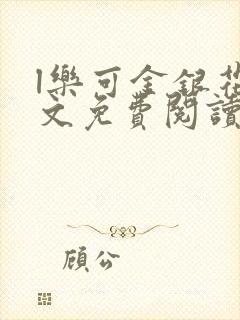 l樂可金銀花
文免費閱讀
顧公